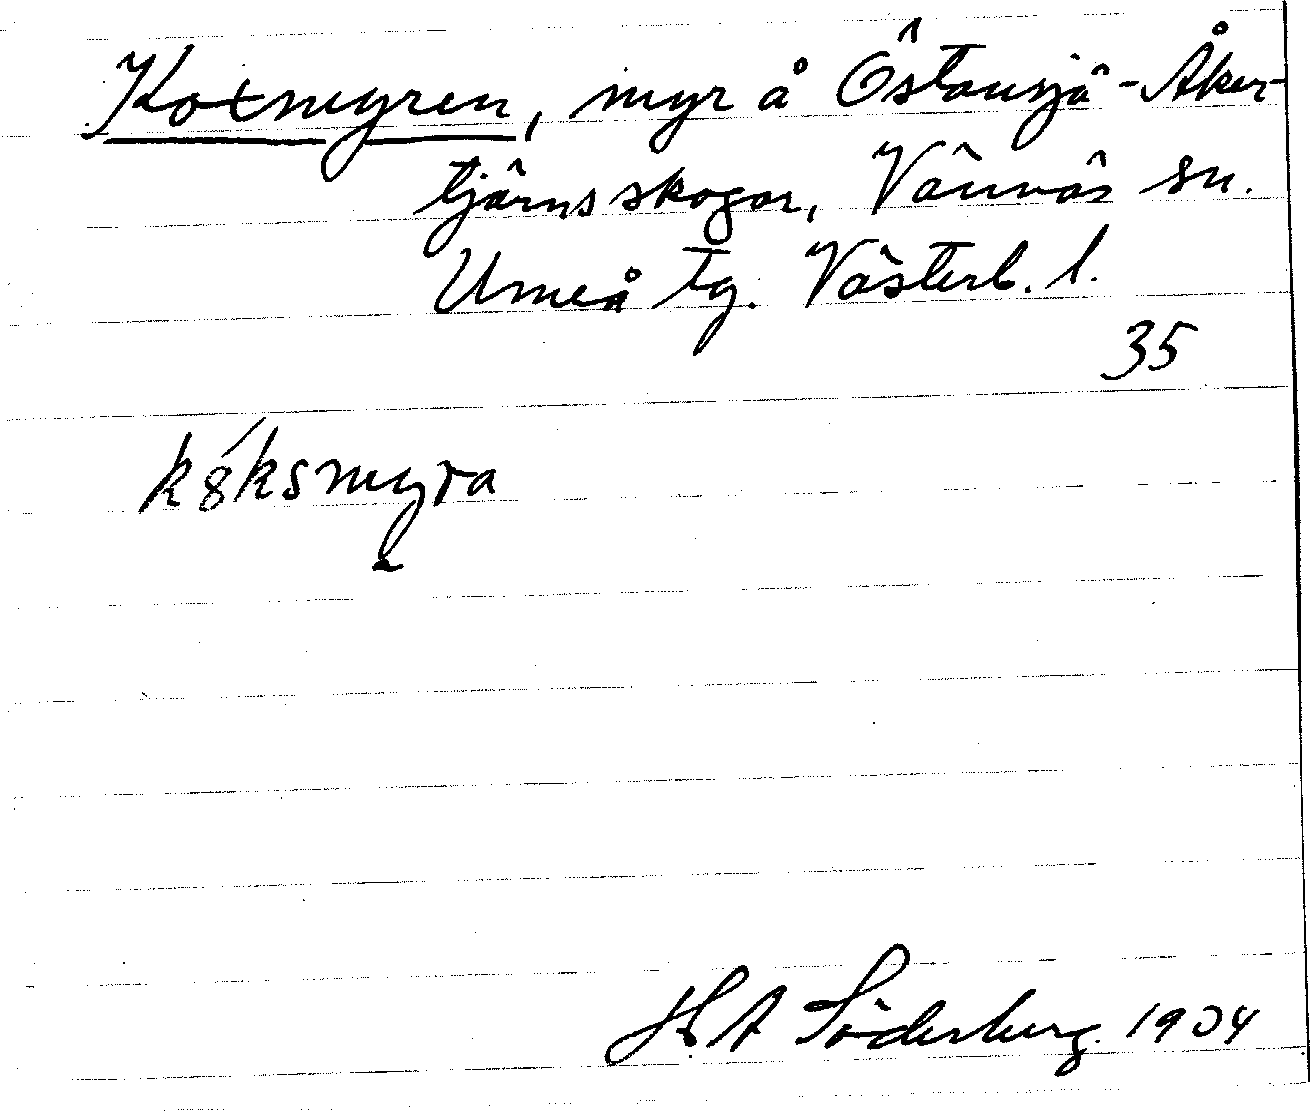 Koxmyren, myr å Östansjö-Åker-
tjärnsskogar, Vännäs sn.
Umeå tg. Västerb. l.
35
k8ksmyra
H A Söderberg. 1934